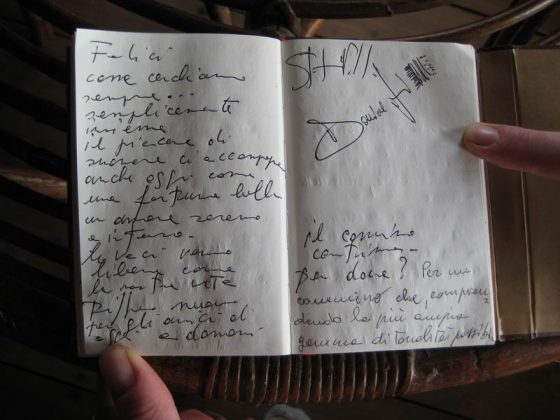 Felici
come cerchiamo
sempre...
semplicemente
insieme
il piacere di
suonare ci accompagna
anche oggi come
una fortuna bella
un amore sereno
e intenso.
le voci vanno
libere come
le nostre vite
per gli amici di
oggi e domani.
il cammino
continua.
per dove? Per un
cammino che compren
dendo la più ampia
gamma di tonalità possibili